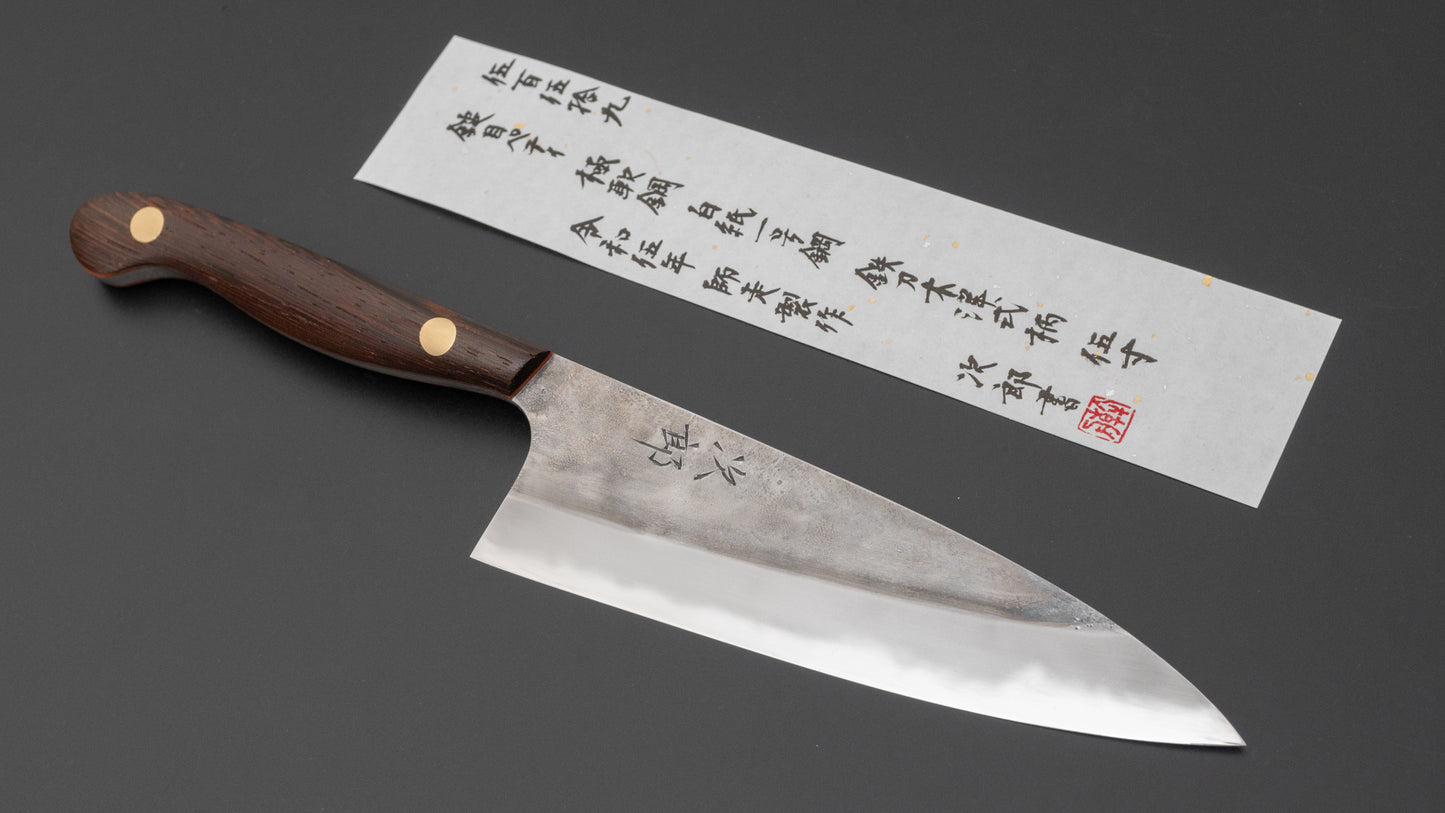 伍百伍拾九
鎚目ペティ 極軟鋼 白紙一号鋼 鉄刀木洋式柄 伍寸
令和伍年 師走製作 次郎書
次郎